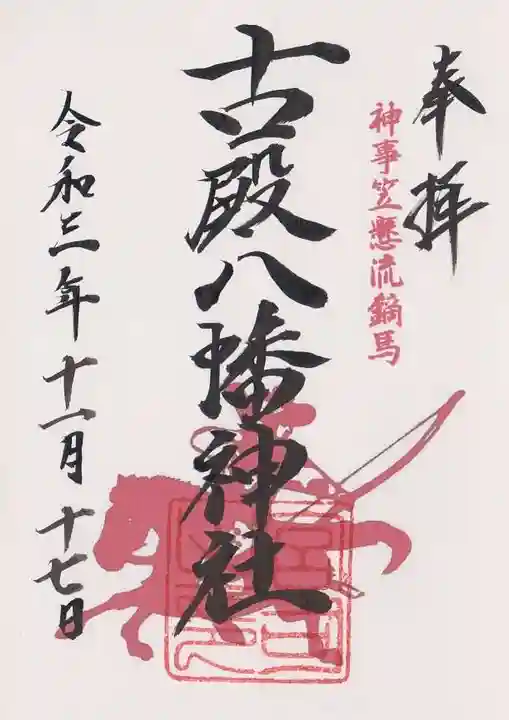 奉拝
神事笠懸流鏑馬
古殿八幡神社
令和三年十一月十七日